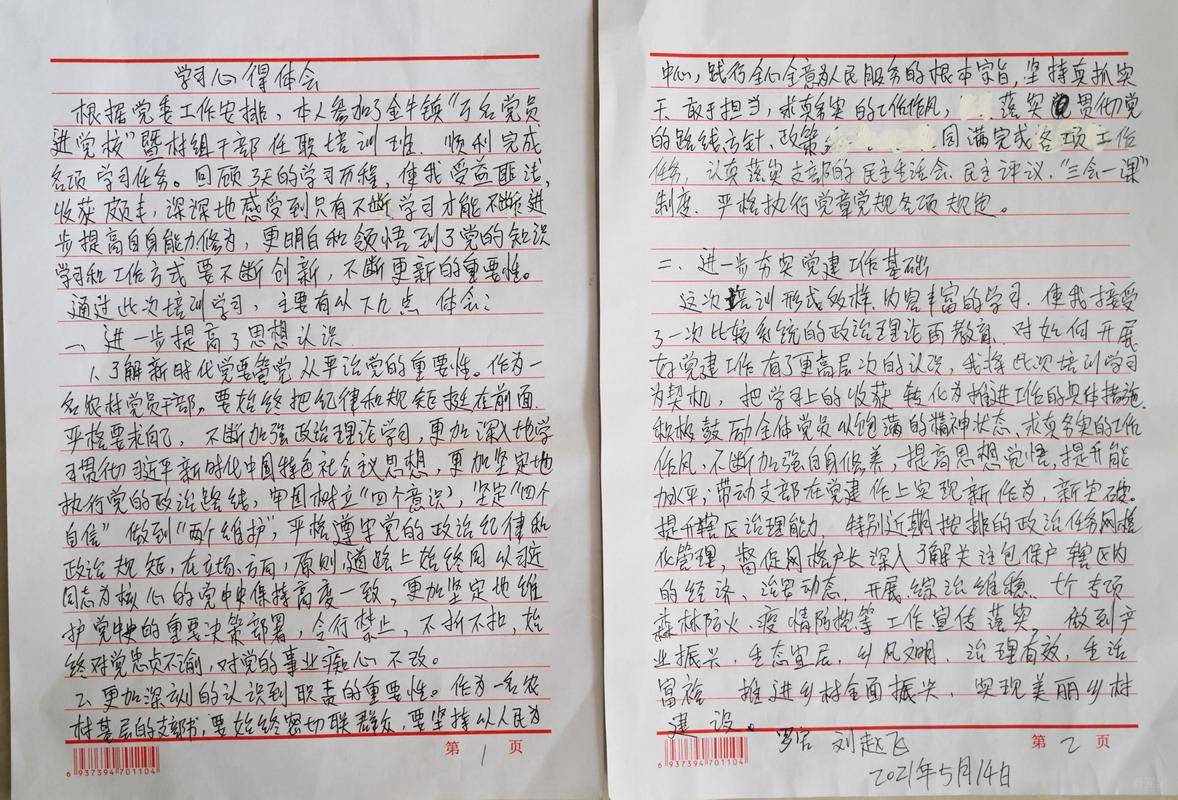 学习心得体会
根据党委工作安排，本人参加了金牛镇“万名党员
进党校”暨村组干部任职培训班，顺利完成
各项学习任务。回顾3天的学习历程，使我受益匪浅，
收获颇丰，深深地感受到只有不断学习才能不断进
步提高自身能力修为，更明白和领悟到了党的知识
学习和工作方式要不断创新，不断更新的重要性。
通过此次培训学习，主要有以下几点体会：
一、进一步提高了思想认识
1、了解新时代党要管党从严治党的重要性。作为一
名农村党员干部，要始终把纪律和规矩挺在前面
严格要求自己，不断加强政治理论学习，更加深入地学
习贯彻习近平新时代中国特色社会主义思想，更加坚定地
执行党的政治路线，牢固树立“四个意识”，坚定“四个
自信”做到“两个维护”，严格遵守党的政治纪律和
政治规矩，在立场、方向、原则、道路上始终同以习近
同志为核心的党中央保持高度一致，更加坚定地维
护党中央的重要决策部署，令行禁止，不折不扣，始
终对党忠贞不渝，对党的事业痴心不改。
2、更加深刻的认识到职责的重要性。作为一名农
村基层的支部书，要始终密切联群众，要坚持以人民为
第1页
6937394701104
中心，践行全心全意为人民服务的根本宗旨，坚持真抓实
干敢于担当，求真务实的工作作风，落实贯彻党
的路线方针、政策，圆满完成各项工作
任务，认真落实支部的民主生活会、民主评议、“三会一课”
制度，严格执行党章党规各项规定。
二、进一步夯实党建工作基础
这次培训形式多样、内容丰富的学习，使我接受
了一次比较系统的政治理论面教育，对如何开展
好党建工作有了更高层次的认识，我将此次培训学习
为契机，把学习上的收获转化为推进工作的实体措施
积极鼓励全体党员以饱满的精神状态、求真务实的工作
作风，不断加强自身修养，提高思想觉悟，提升能
力水平，带动支部在党建作上实现新作为，新突破。
提升辖区治理能力，特别近期按排的政治任务网格
化管理，督促网格户长深入了解关注包保户辖区内
的经济、治安动态，开展综治维稳、专项
森林防火、疫情防控等工作宣传落实，做到产
业振兴、生态宜居、乡风文明、治理有效、生活
富裕推进乡村全面振兴，实现美丽乡村
建设。
刘赵飞
第2页
2021年5月14日